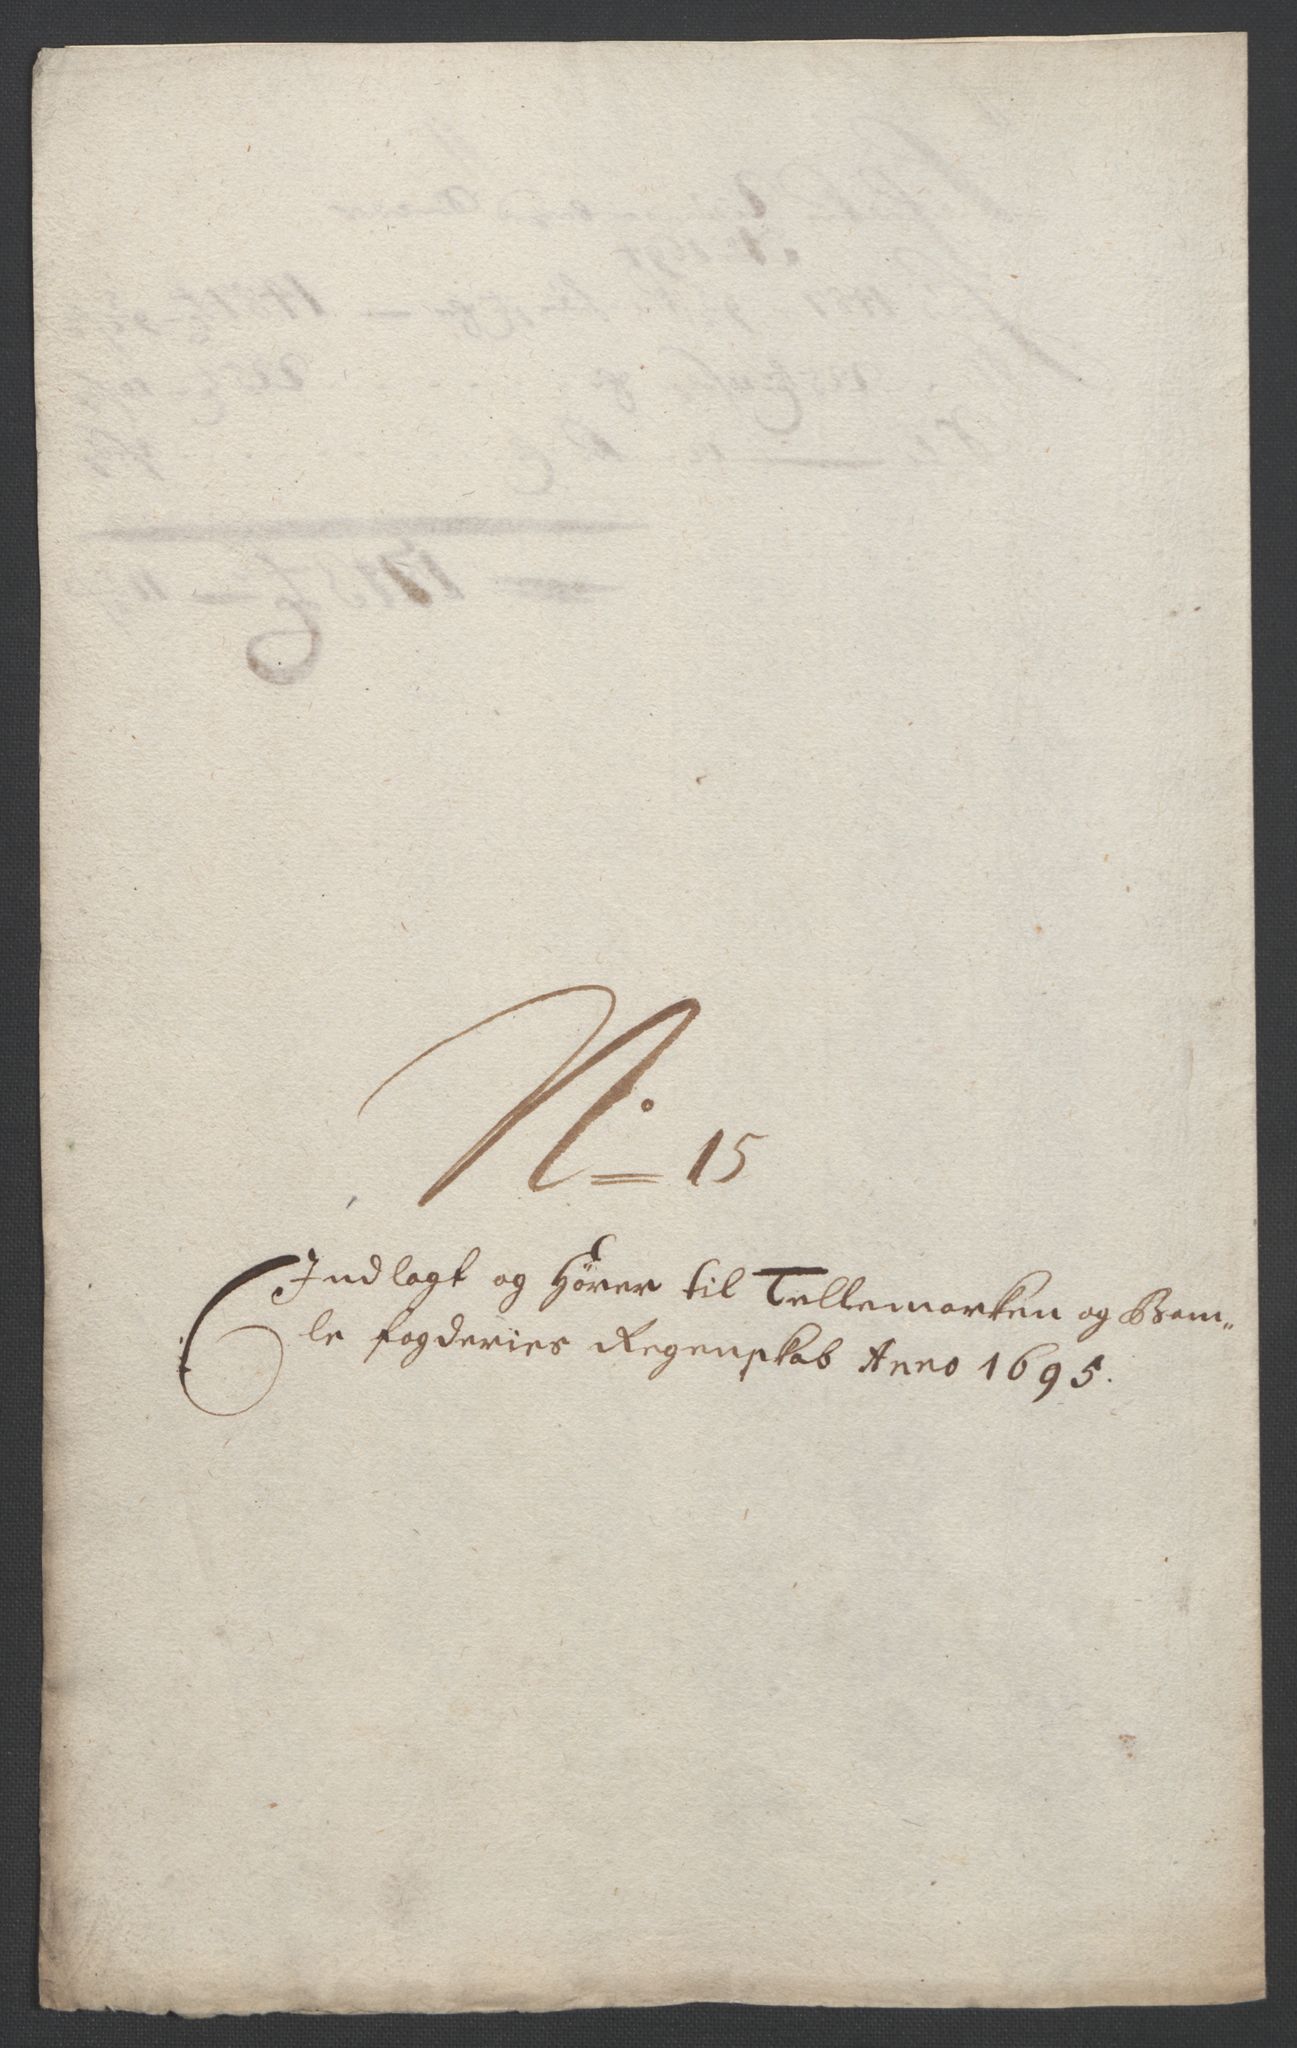 N° 15
Indlagt og hörer til Tellemarken og Bam„
le fogderies Regenskab Anno 1695.